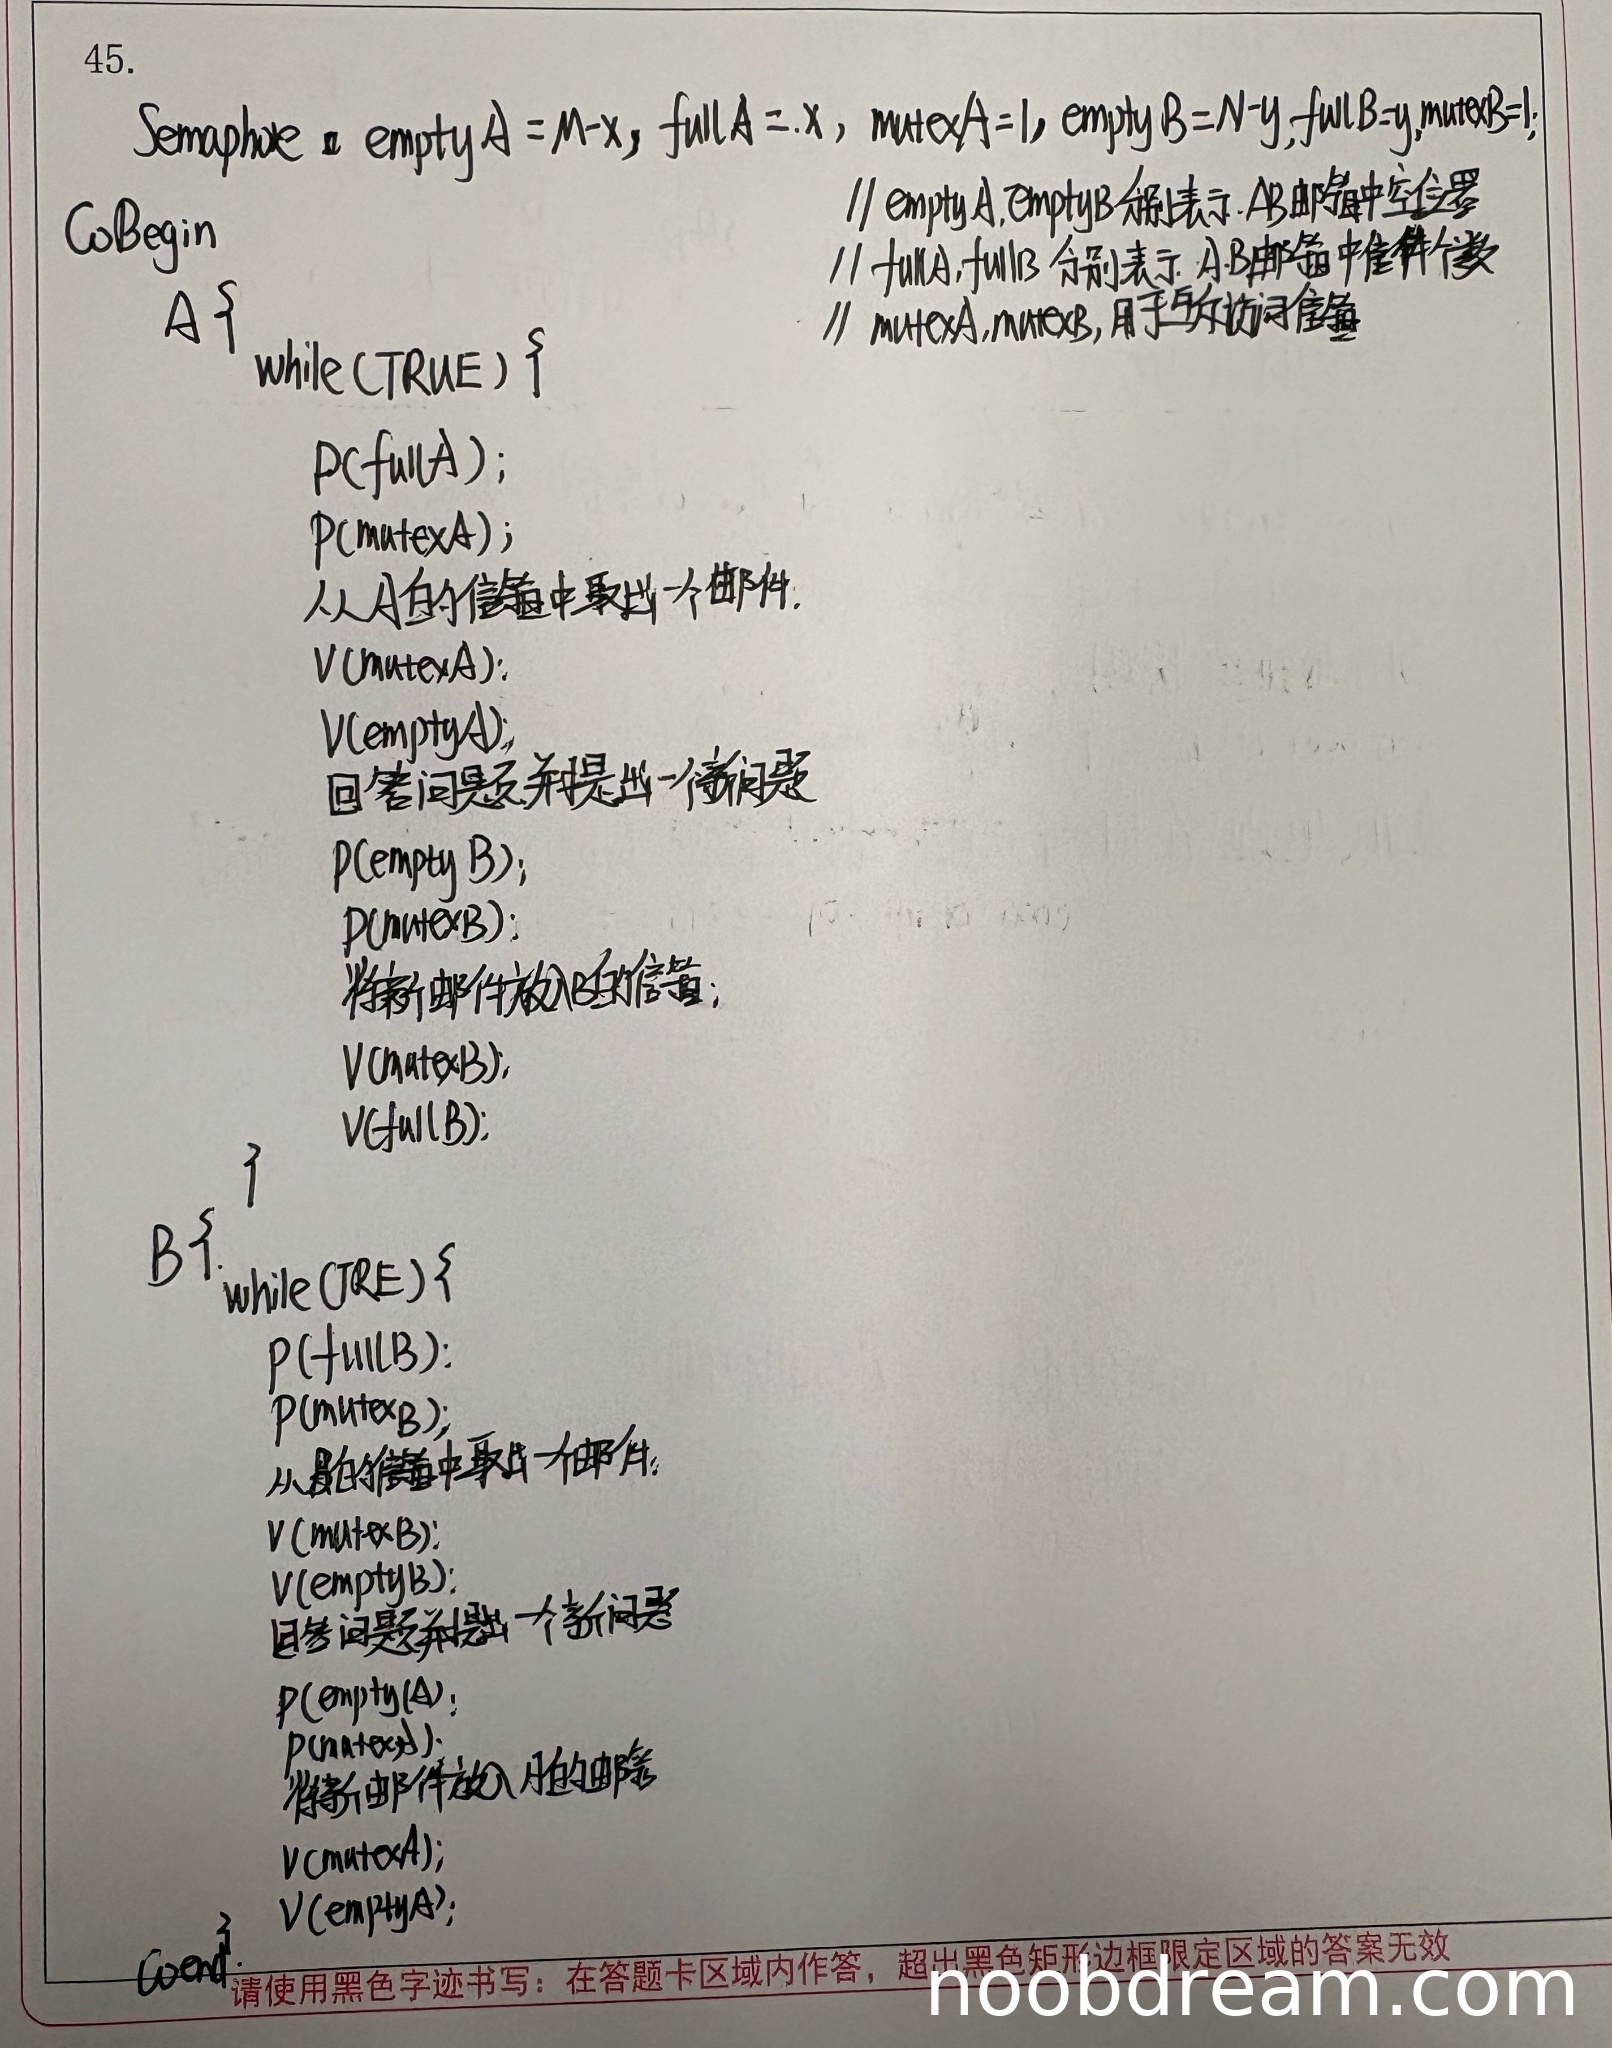 45.
Semaphore emptyA=M-x, fullA=x, mutexA=1, emptyB=N-y, fullB=y, mutexB=1;
// emptyA, emptyB 分别表示 AB邮箱中空位置
CoBegin
// fullA, fullB 分别表示 A.B邮箱中信件个数
A{
// mutexA, mutexB, 用于互斥访问信箱
while(TRUE){
P(fullA);
P(mutexA);
从A的信箱中取出一个邮件.
V(mutexA);
V(emptyA);
回答问题并提出一个新问题
P(emptyB);
P(mutexB);
将新邮件放入B的信箱;
V(mutexB);
V(fullB);
}
B{
while(TRE){
P(fullB);
P(mutexB);
从B的信箱中取出一个邮件;
V(mutexB);
V(emptyB);
回答问题并提出一个新问题
P(empty(A);
P(mutexA);
将新邮件放入A的邮箱
V(mutexA);
V(emptyA);
}
Coend.
请使用黑色字迹书写：在答题卡区域内作答，超出黑色矩形边框限定区域的答案无效
noobdream.com